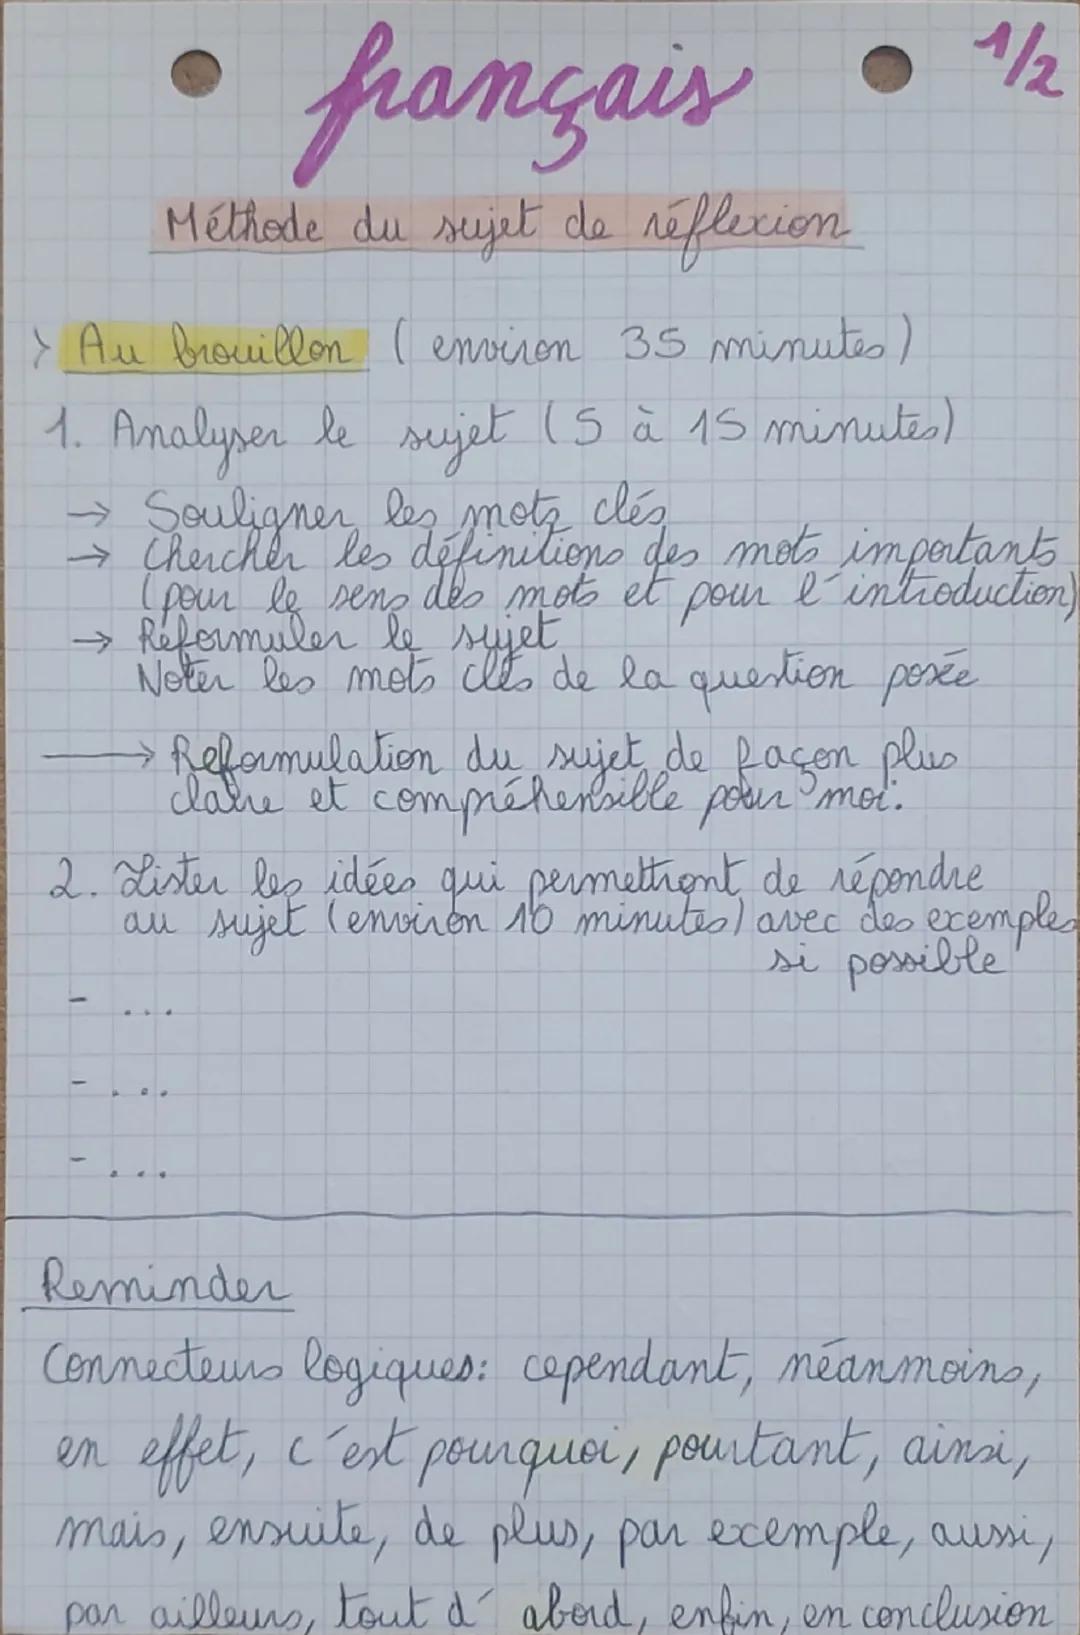 français 1/2
Méthode du sujet de réflexion
> Au brouillon (environ 35 minutes)
1. Analyser le sujet (5 à 15 minutes)
→ Souligner les mots clés
→ Chercher les définitions des mots importants
(pour le sens des mots et pour l'introduction)
→ Reformuler le sujet
Noter les mots clés de la question posée
→ Reformulation du sujet de façon plus
claire et compréhensible pour moi.
2. Lister les idées qui permettront de répondre
au sujet (environ 10 minutes) avec des exemples
si possible
- ...
- ...
- ...
Reminder
Connecteurs logiques: cependant, néanmoins,
en effet, c'est pourquoi, pourtant, ainsi,
mais, ensuite, de plus, par exemple, aussi,
par ailleurs, tout d'abord, enfin, en conclusion